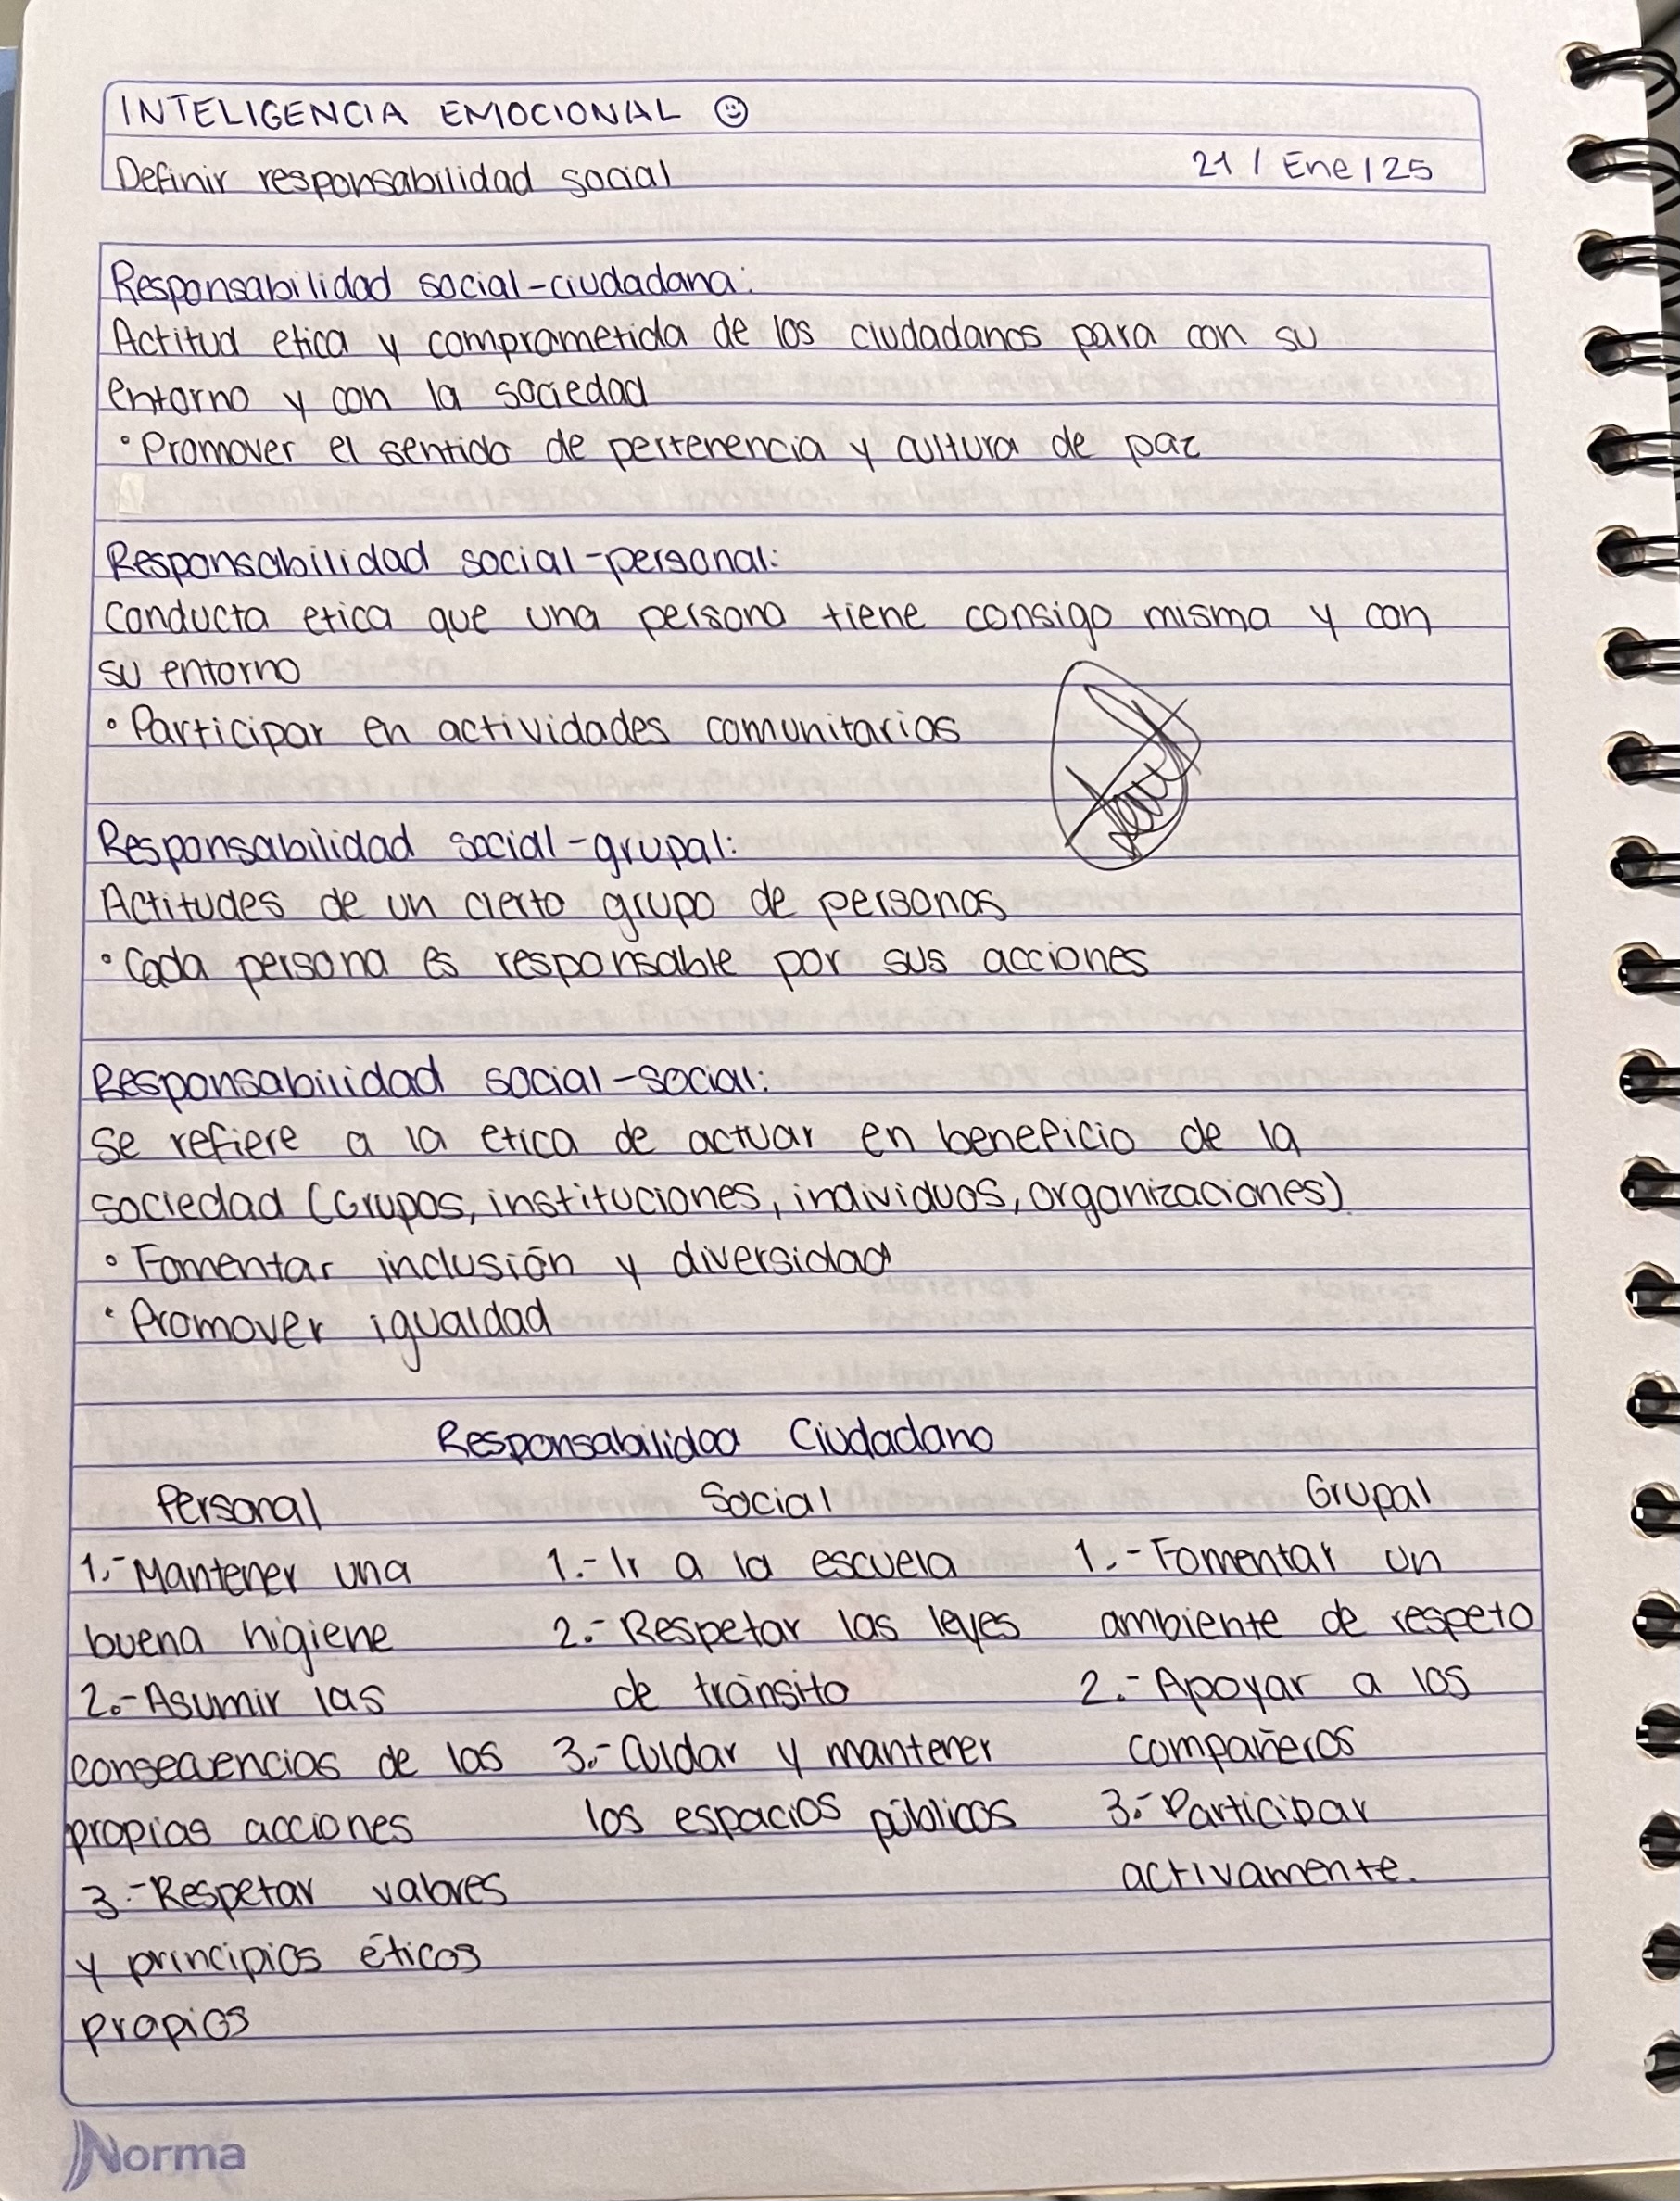 INTELIGENCIA EMOCIONAL
Definir responsabilidad social
21 / Ene / 25
Responsabilidad social-ciudadana:
Actitud etica y comprometida de los ciudadanos para con su
entorno y con la sociedad
• Promover el sentido de pertenencia y cultura de paz
Responsabilidad social-personal:
Conducta etica que una persona tiene consigo misma y con
su entorno
• Participar en actividades comunitarias
Responsabilidad social-grupal:
Actitudes de un cierto grupo de personas
• Cada persona es responsable por sus acciones
Responsabilidad social-social:
Se refiere a la etica de actuar en beneficio de la
sociedad (Grupos, instituciones, individuos, organizaciones)
• Fomentar inclusión y diversidad
• Promover igualdad
Responsabilidad Ciudadano
Personal
1.- Mantener una
buena higiene
2.- Asumir las
consecuencias de las
propias acciones
3.- Respetar valores
y principios éticos
propios
Social
1.- Ir a la escuela
2.- Respetar las leyes
de tránsito
3.- Cuidar y mantener
los espacios públicos
Grupal
1.- Fomentar un
ambiente de respeto
2.- Apoyar a los
compañeros
3.- Participar
activamente.
Norma